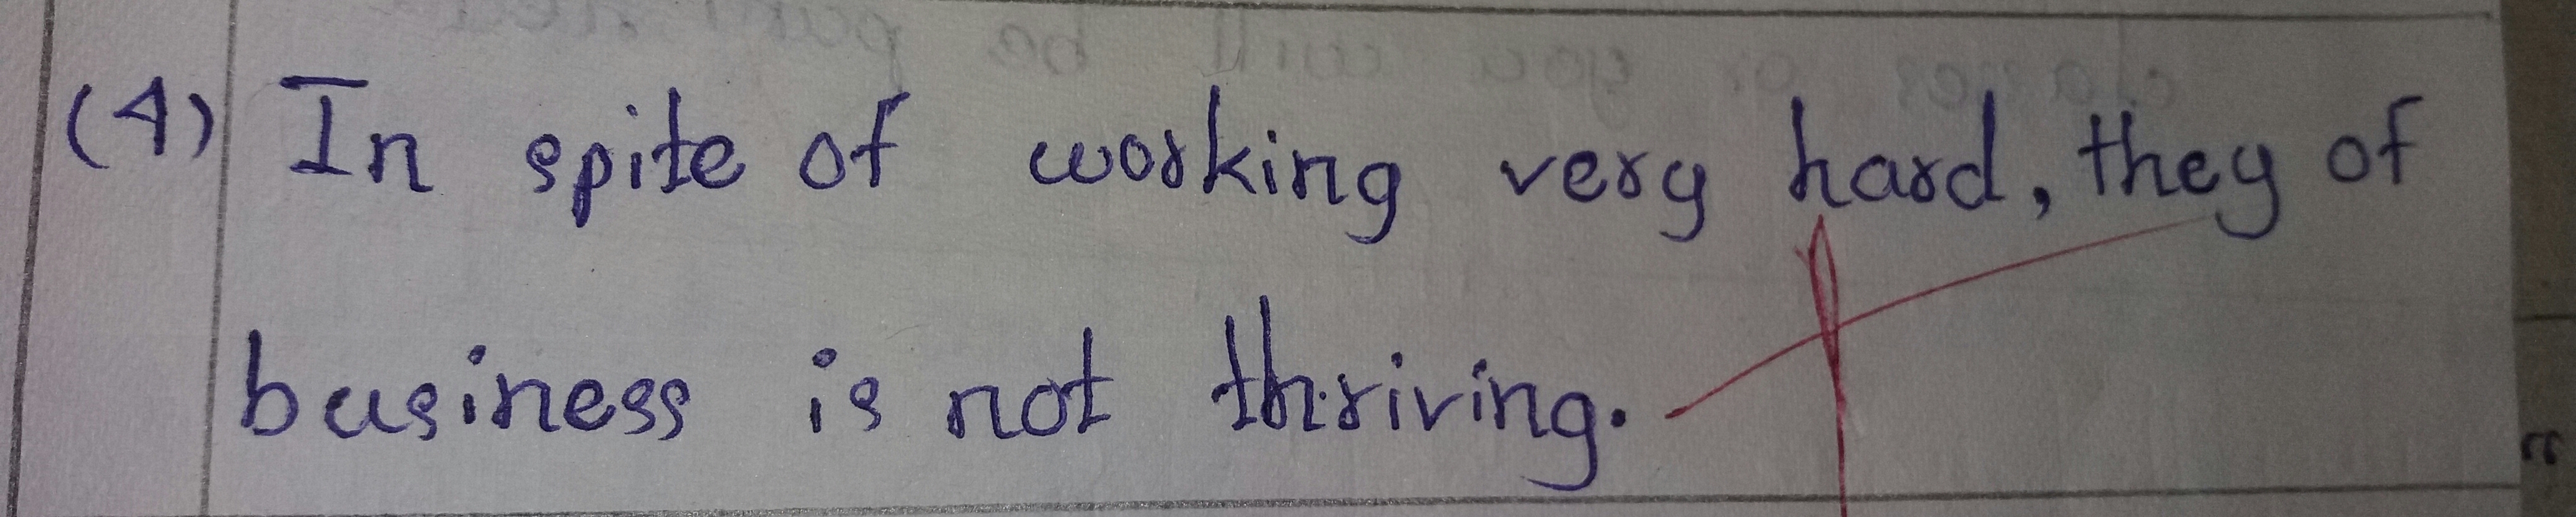 (4) In spite of working very hard, they of
business is not thriving.